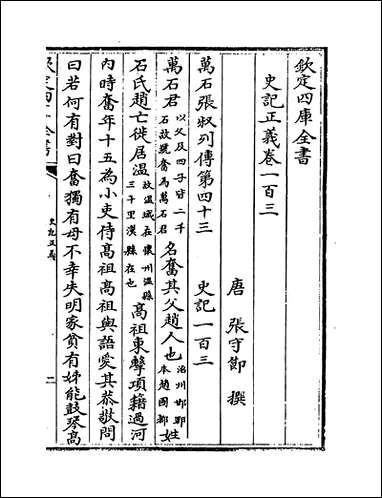 欽定四庫全書
史記正義卷一百三
唐 張守節 撰
萬石張叔列傳第四十三 史記一百三
萬石君以父及四子皆二千石故號奮為萬石君名奮其父趙人也洺州邯鄲本趙國都姓
石氏趙亡徙居温故温城在懷州温縣三十里漢縣在也高祖東擊項籍過河
内時奮年十五為小吏侍高祖高祖與語愛其恭敬問
曰若何有對曰奮獨有母不幸失明家貧有姊能鼓琴高
欽定四庫全書
史記正義